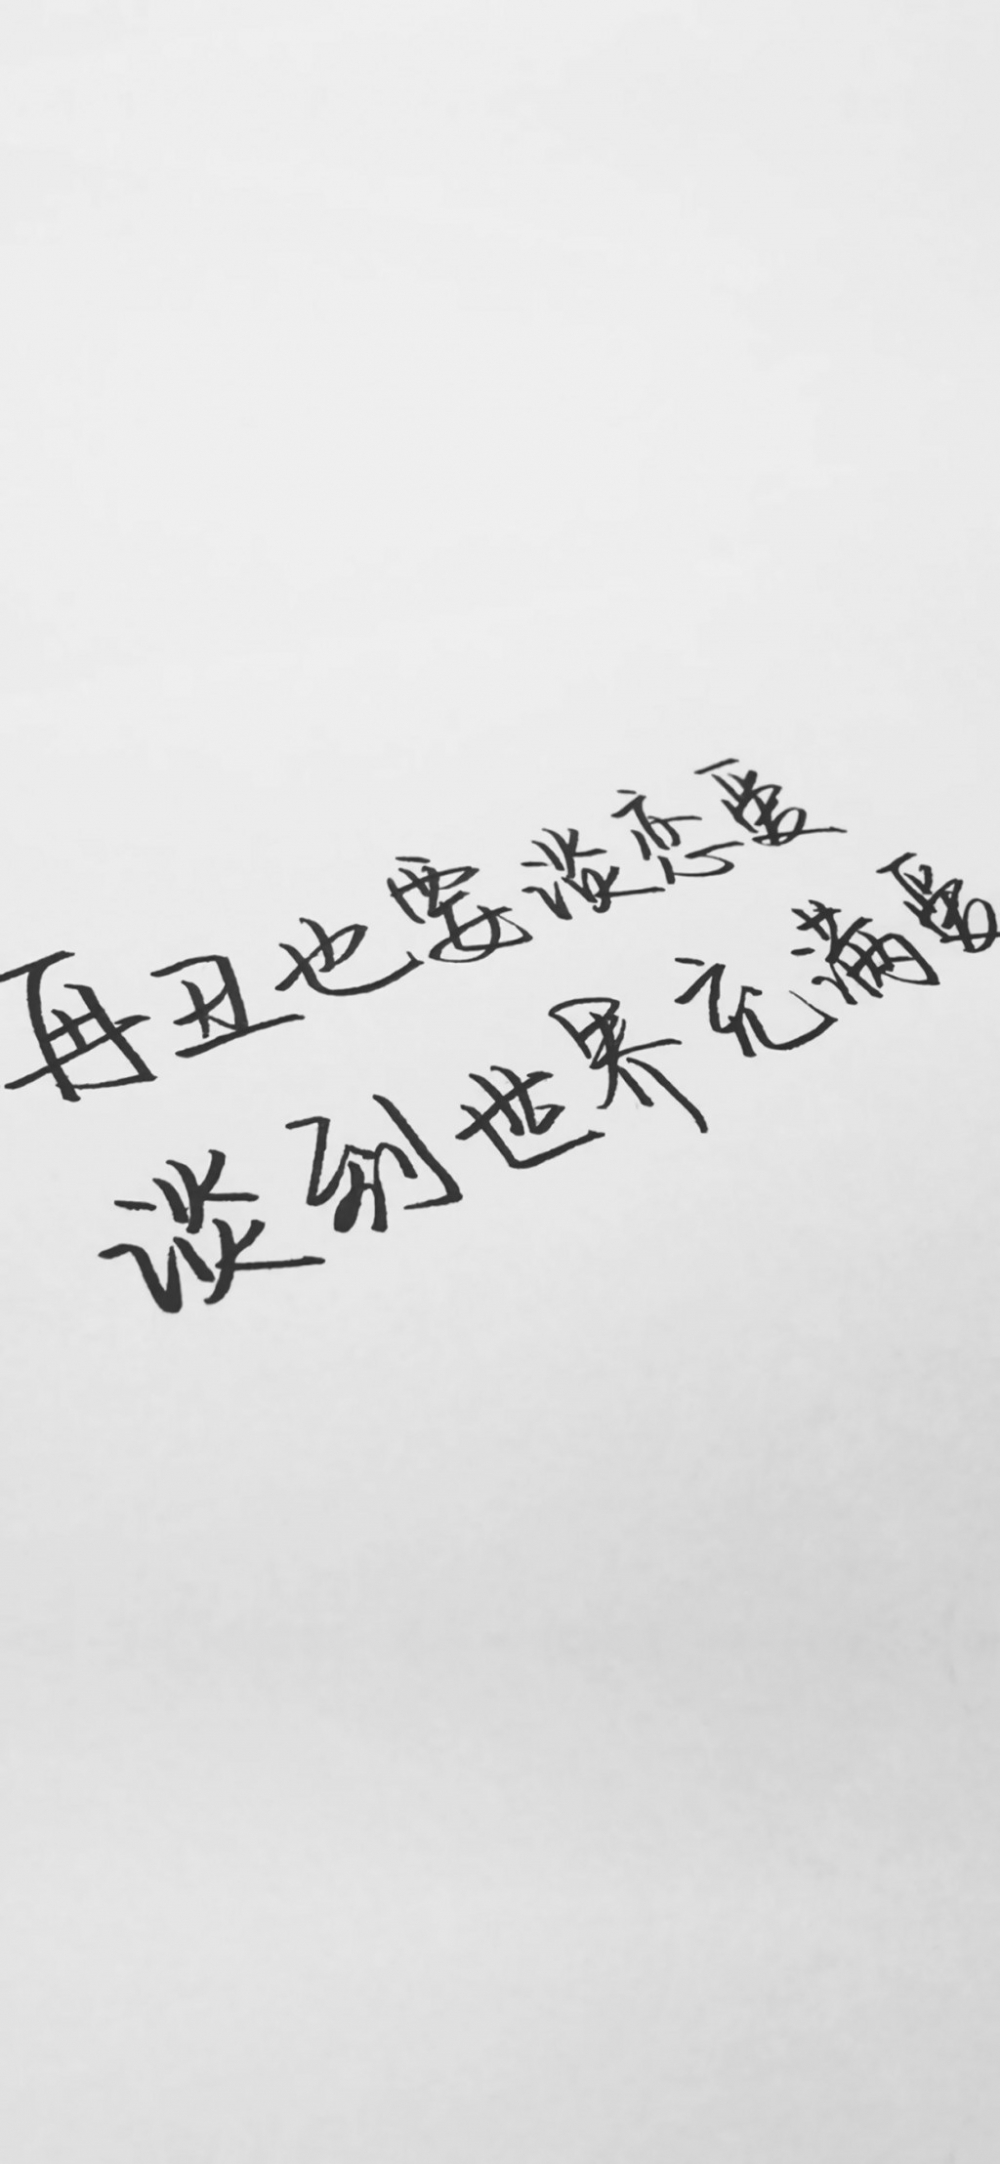 再丑也要谈恋爱
谈到世界充满爱